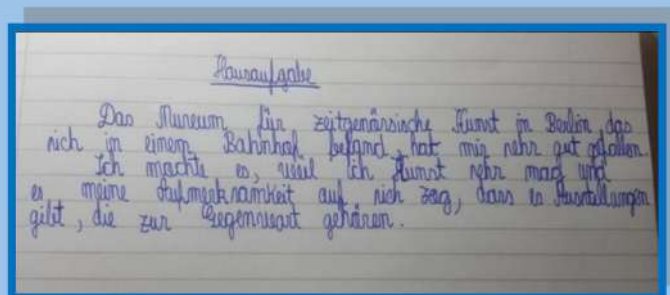 Hausaufgabe
Das Museum für zeitgenössische Kunst in Berlin das
sich in einem Bahnhof befand, hat mir sehr gut gefallen.
Ich machte es, weil ich Kunst sehr mag und
es meine Aufmerksamkeit auf sich zog, dass es Ausstellungen
gibt, die zur Gegenwart gehören.